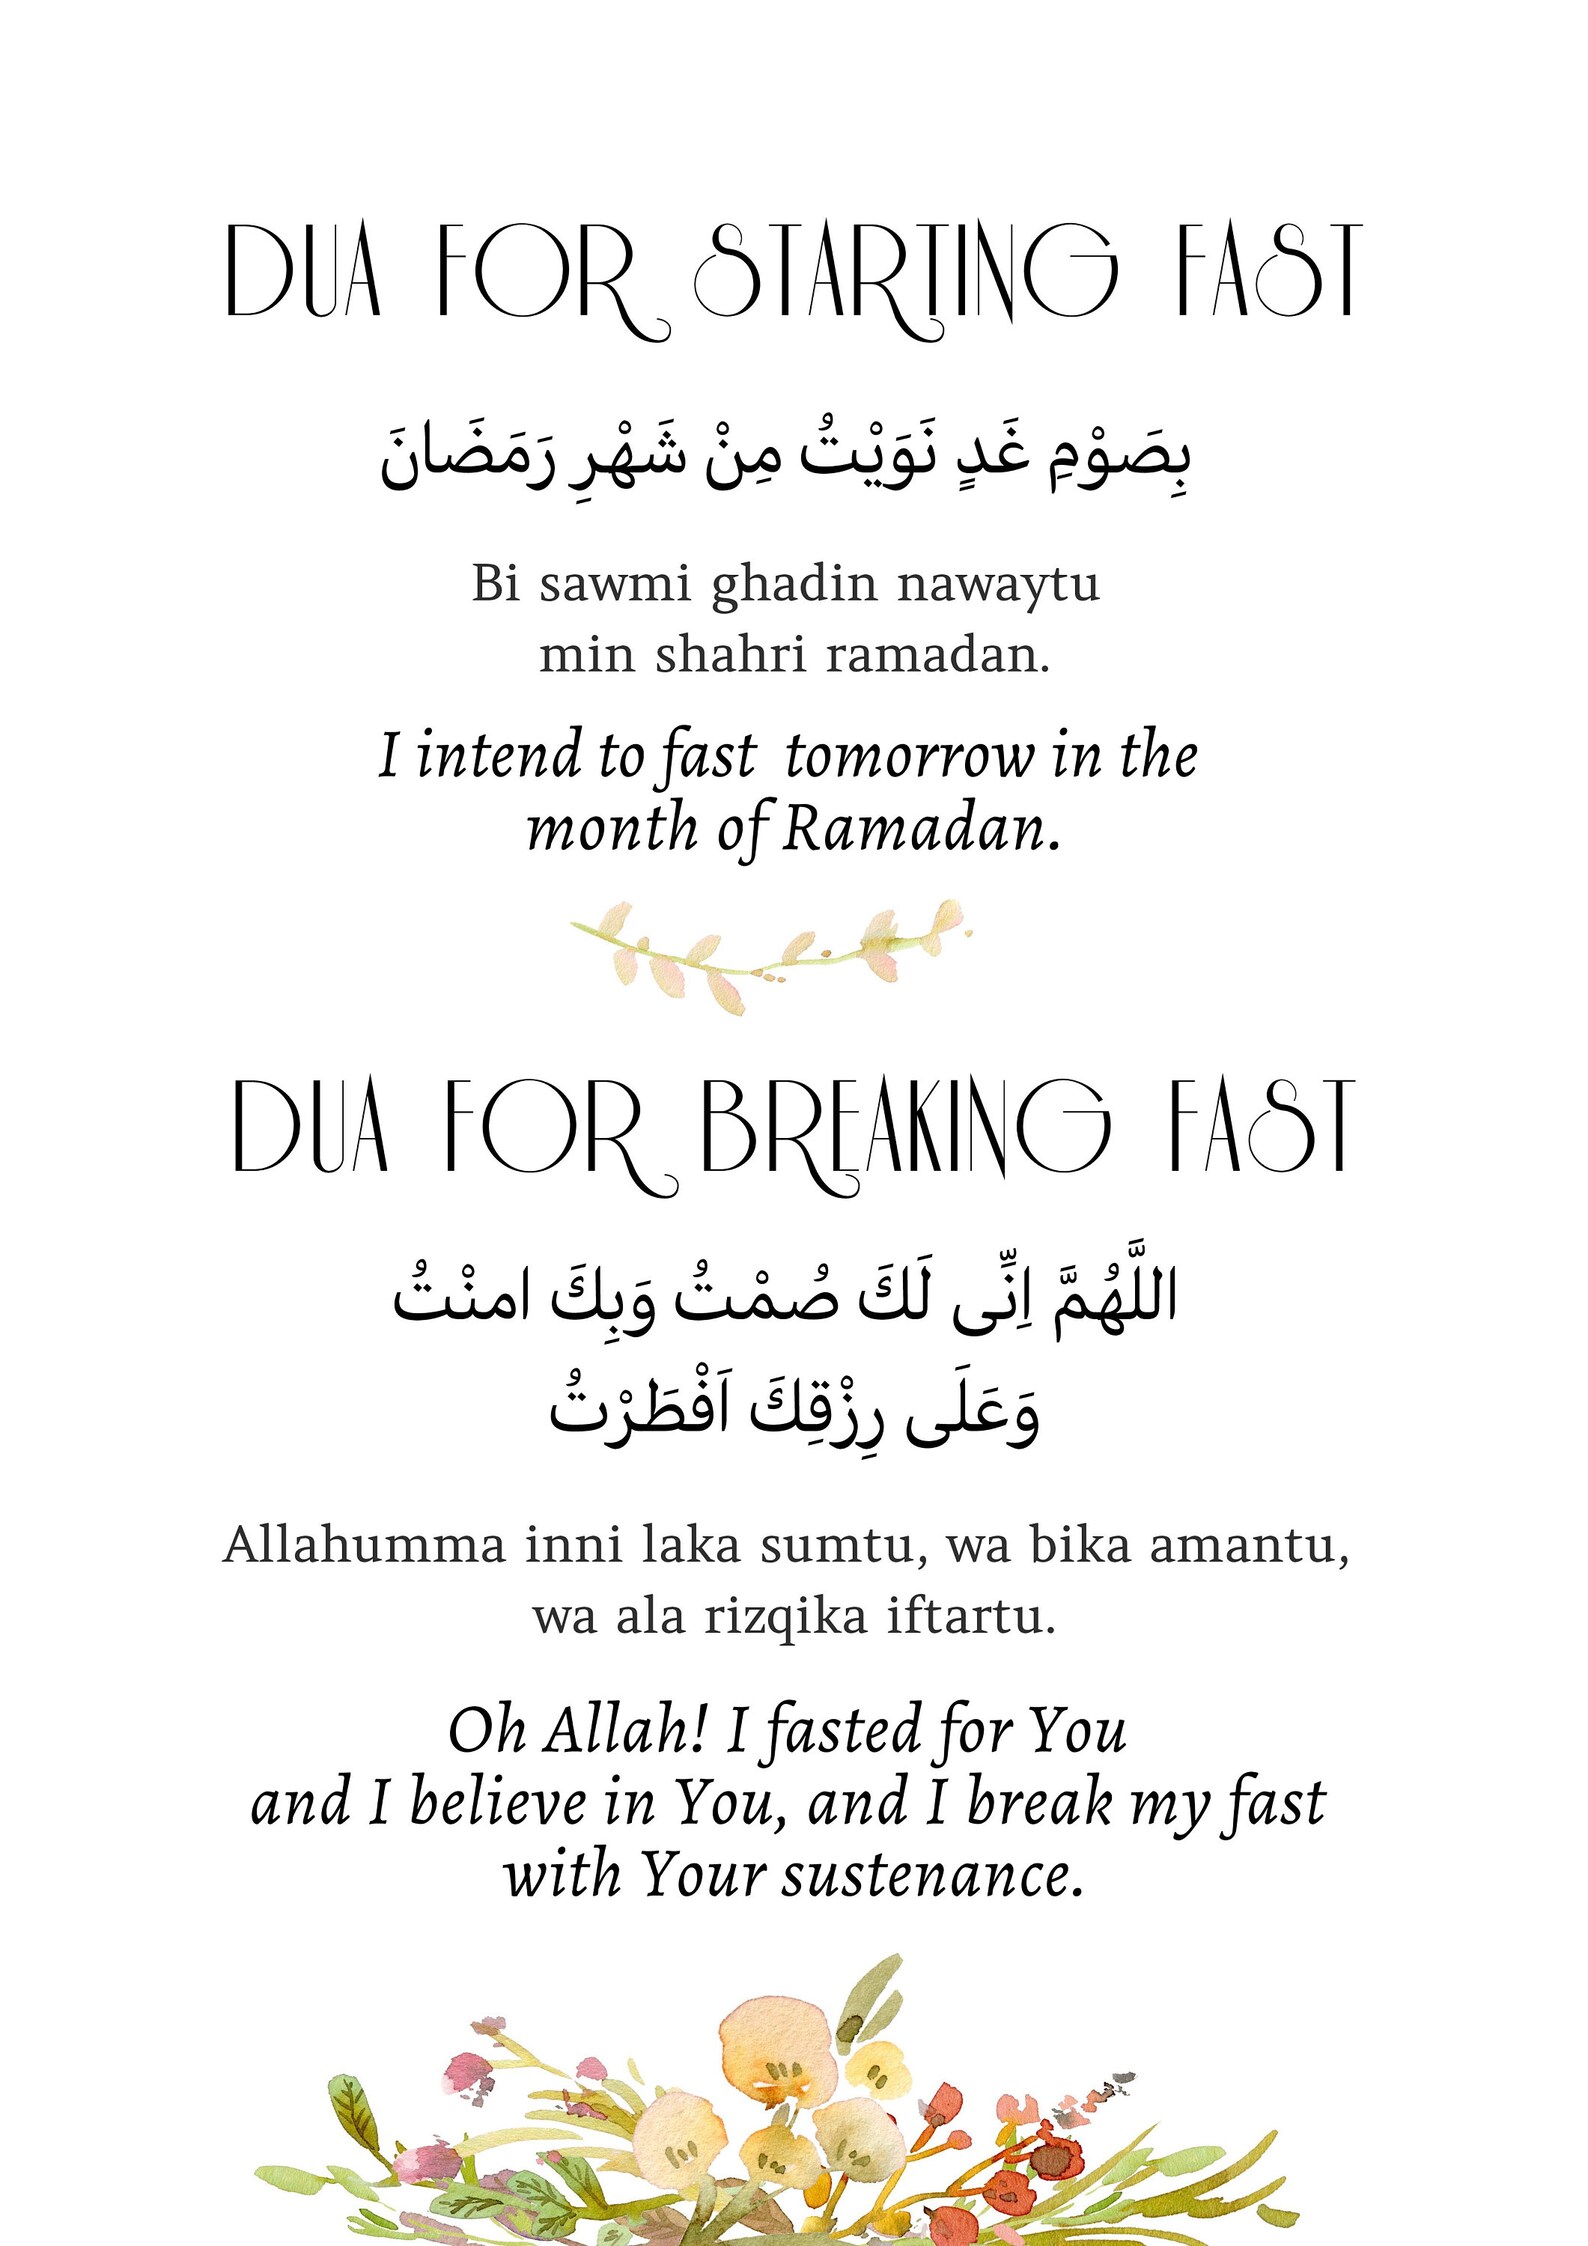 DUA FOR STARTING FAST
بِصَوْمِ غَدٍ نَوَيْتُ مِنْ شَهْرِ رَمَضَانَ
Bi sawmi ghadin nawaytu
min shahri ramadan.
I intend to fast tomorrow in the
month of Ramadan.
DUA FOR BREAKING FAST
اللَّهُمَّ اِنِّى لَكَ صُمْتُ وَبِكَ امنْتُ
وَعَلَى رِزْقِكَ اَفْطَرْتُ
Allahumma inni laka sumtu, wa bika amantu,
wa ala rizqika iftartu.
Oh Allah! I fasted for You
and I believe in You, and I break my fast
with Your sustenance.